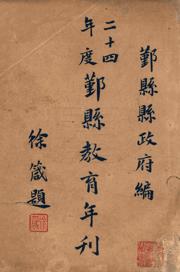 鄞縣縣政府編
二十四
年度鄞縣教育年刊
徐箴題